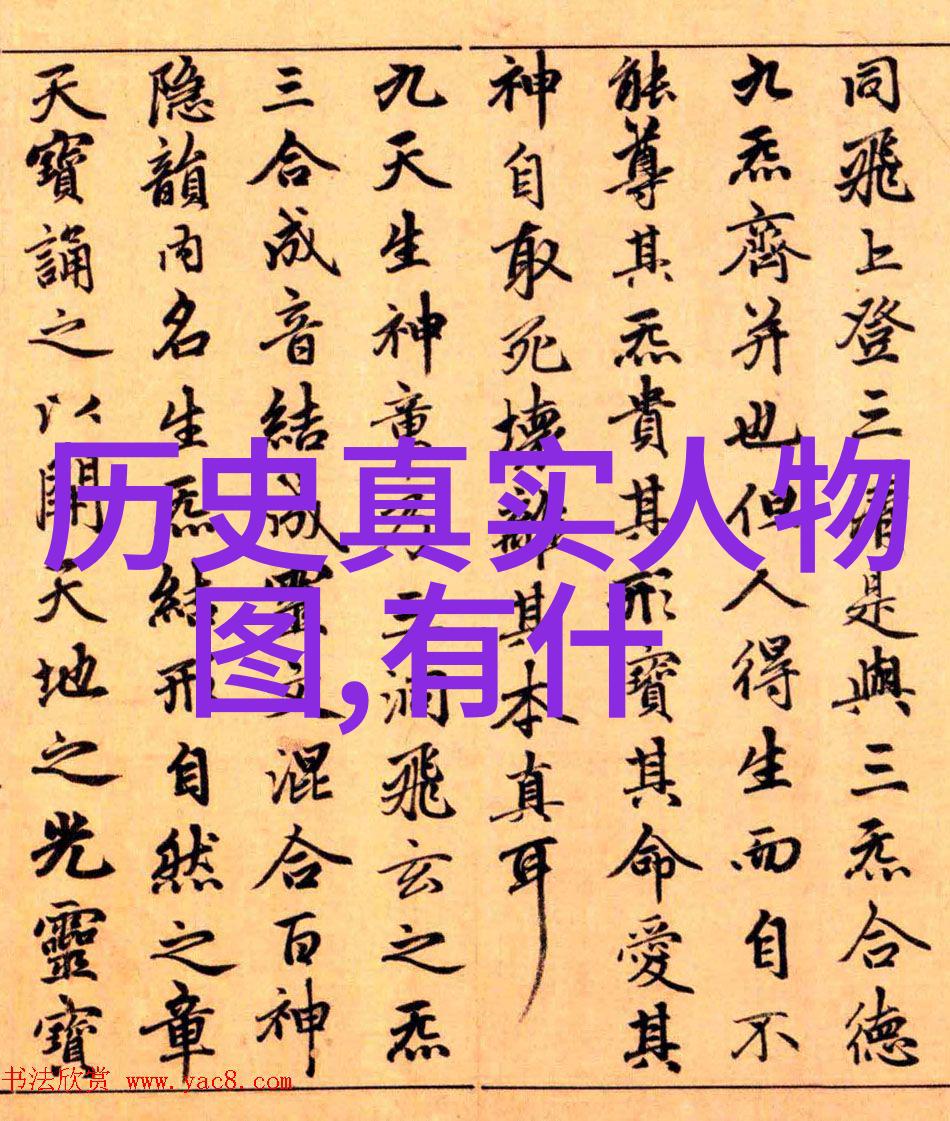 同飛上登三清是與三炁合德
九炁齊并也但人得生而自不
能尊其炁貴其形寶其命愛其
神自取死壞離其本真耳
九天生神章乃三洞飛玄之炁
三合成音結成靈文混合百神
隐韻内名生炁結形自然之章
天寶誦之以開天地之光靈寶
历史真实人物
图,有什
书法欣赏 www.yac8.com